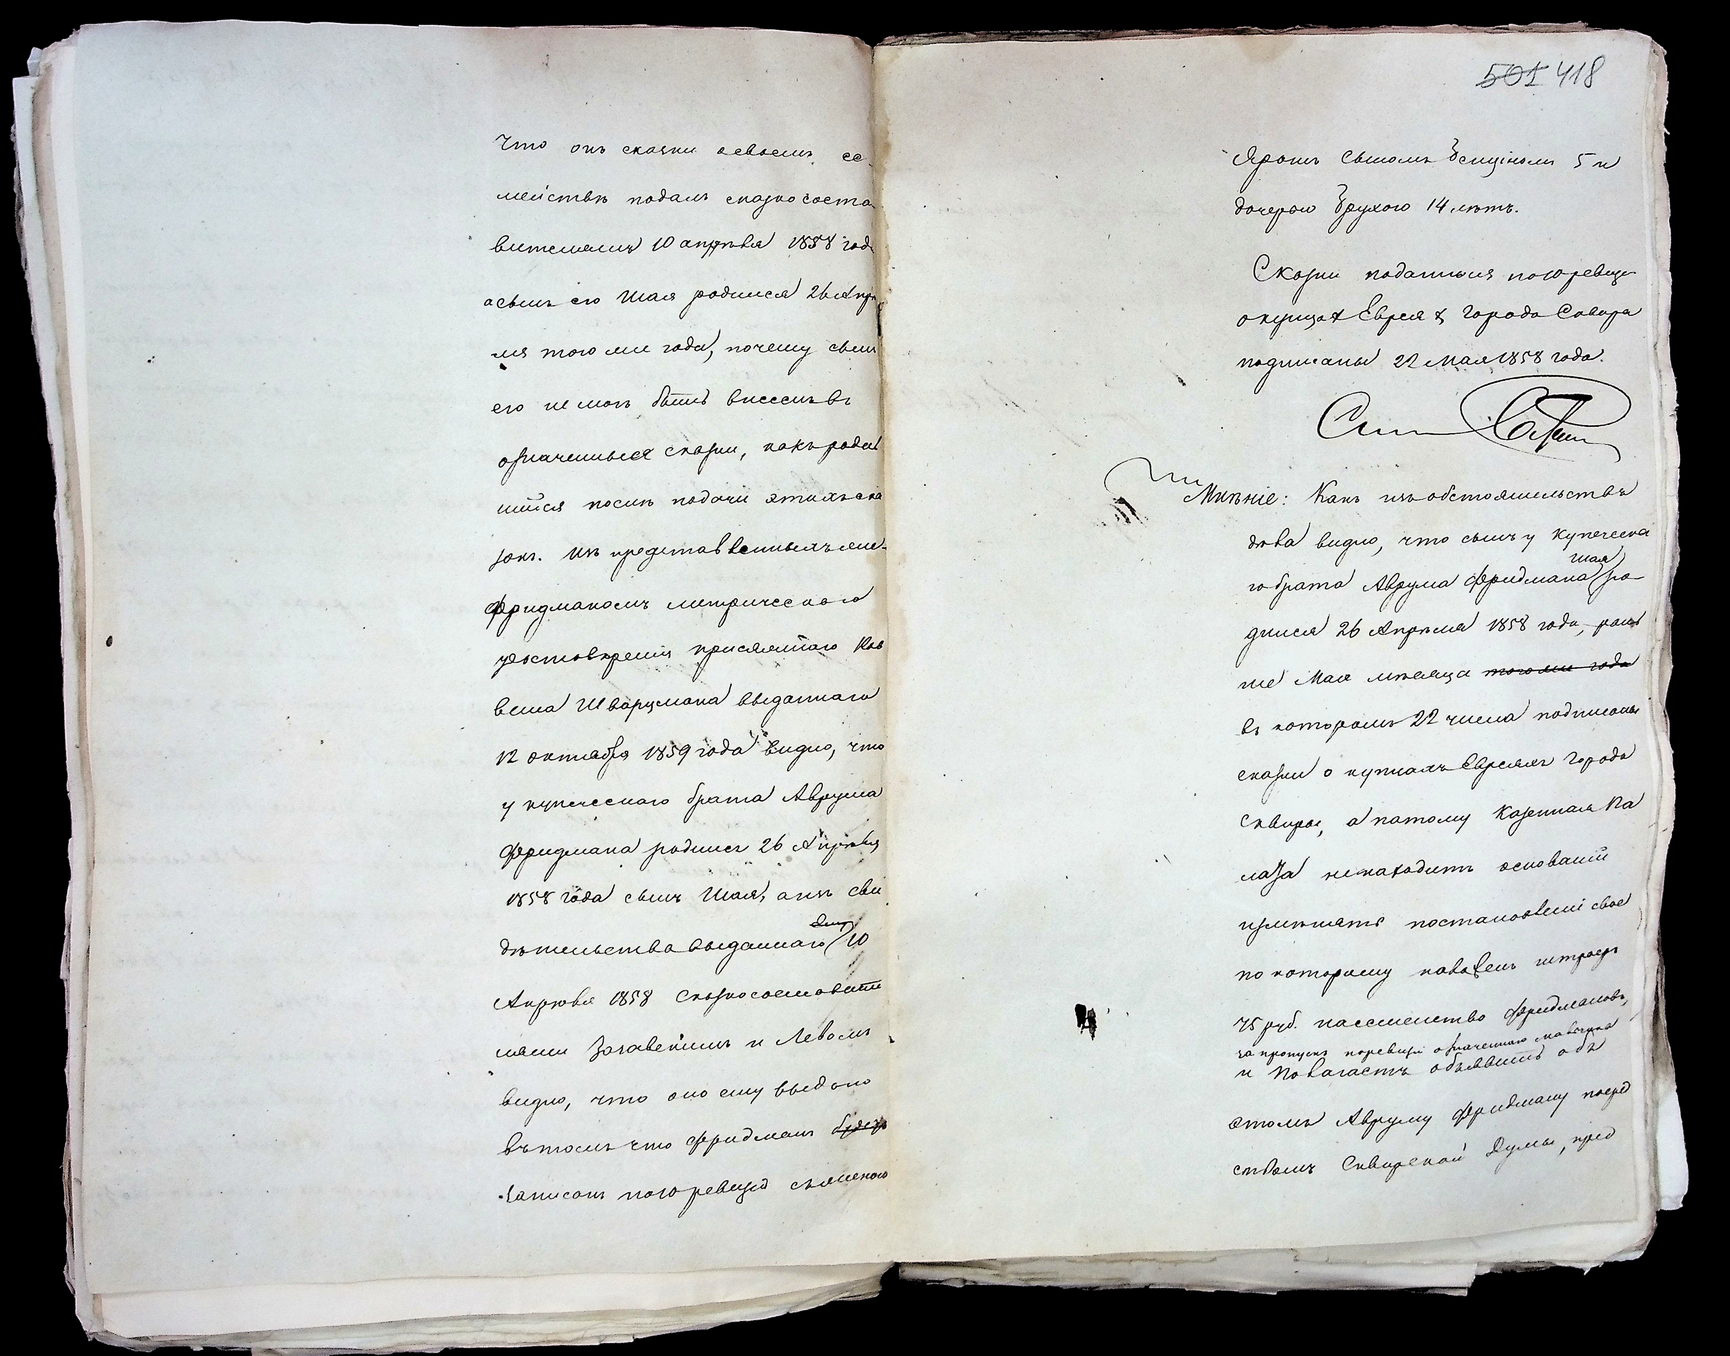 что онъ сказки освоемъ се-
мействѣ подалъ сказкососта
вителямъ 10 апрѣля 1858 года
асынъ его Шая родился 26 Апрѣ
ля того же года, почему сынъ
его не могъ быть внесенъ въ
означенныя сказки, какъ родив
шійся послѣ подачи этихъ ска
зокъ. Изъ представленныхъ же
Фридманомъ метрическаго
удостовѣренія присяжнаго Рав
вина Шварцмана выданнаго
12 октября 1859 года видно, что
у купеческаго брата Аврума
Фридмана родился 26 Апрѣля
1858 года сынъ Шая, а изъ сви
ему
дѣтельства выданнаго 10
Апрѣля 1858 Сказкосоставите
лями и
видно, что оно ему выдано
въ томъ что Фридманъ будетъ
записанъ по 10 ревизіи съ женою
501 418
сыномъ 5 и
дочерью 14 лѣтъ.
Сказки поданныя по 10 ревизіи
о купцахъ Евреяхъ города Сквира
подписаны 22 Мая 1858 года.
Мнѣніе: Какъ изъ обстоятельствъ
дѣла видно, что сынъ у купеческа
Шая
го брата Аврума Фридмана ро-
дился 26 Апрѣля 1858 года, ранѣ
ше Мая мѣсяца того же года
въ которомъ 22 числа подписаны
сказки о купцахъ Евреяхъ города
Сквиры, а потому Казенная Па
лата ненаходитъ основаній
измѣнять постановленіе свое
по которому штрафъ
75 руб. на семейство Фридмановъ,
за пропускъ по ревизіи означеннаго мальчика
и полагаетъ объявить объ
этомъ Авруму Фридману посред
ствомъ Сквирской Думы, пред